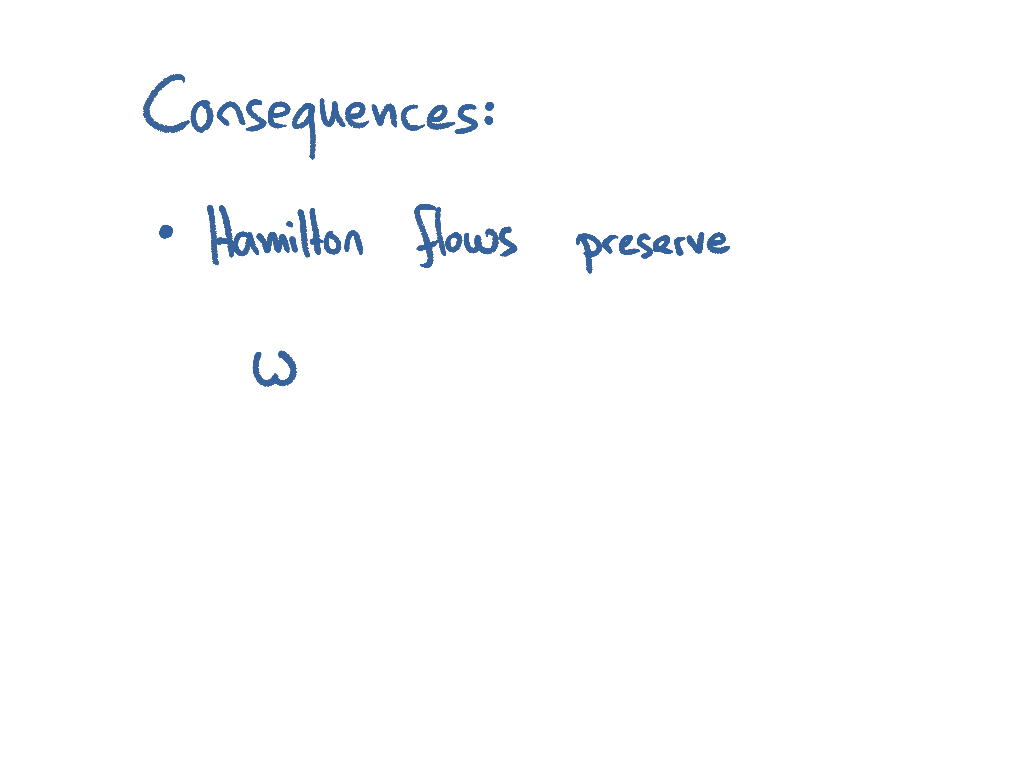 Consequences:
• Hamilton flows preserve
ω